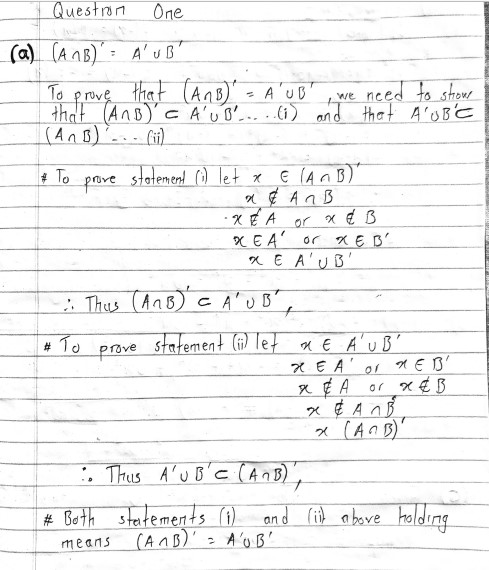 Question One
(a) (A∩B)' = A' ∪ B'
To prove that (A∩B)' = A' ∪ B' , we need to show
that (A∩B)' ⊂ A' ∪ B' ..... (i) and that A' ∪ B' ⊂
(A∩B)' .... (ii)
# To prove statement (i) let x ∈ (A∩B)'
x ∉ A∩B
x ∉ A or x ∉ B
x ∈ A' or x ∈ B'
x ∈ A' ∪ B'
∴ Thus (A∩B)' ⊂ A' ∪ B' ,,
# To prove statement (ii) let x ∈ A' ∪ B'
x ∈ A' or x ∈ B'
x ∉ A or x ∉ B
x ∉ A∩B
x (A∩B)'
∴ Thus A' ∪ B' ⊂ (A∩B)' ,,
# Both statements (i) and (ii) above holding
means (A∩B)' = A' ∪ B'